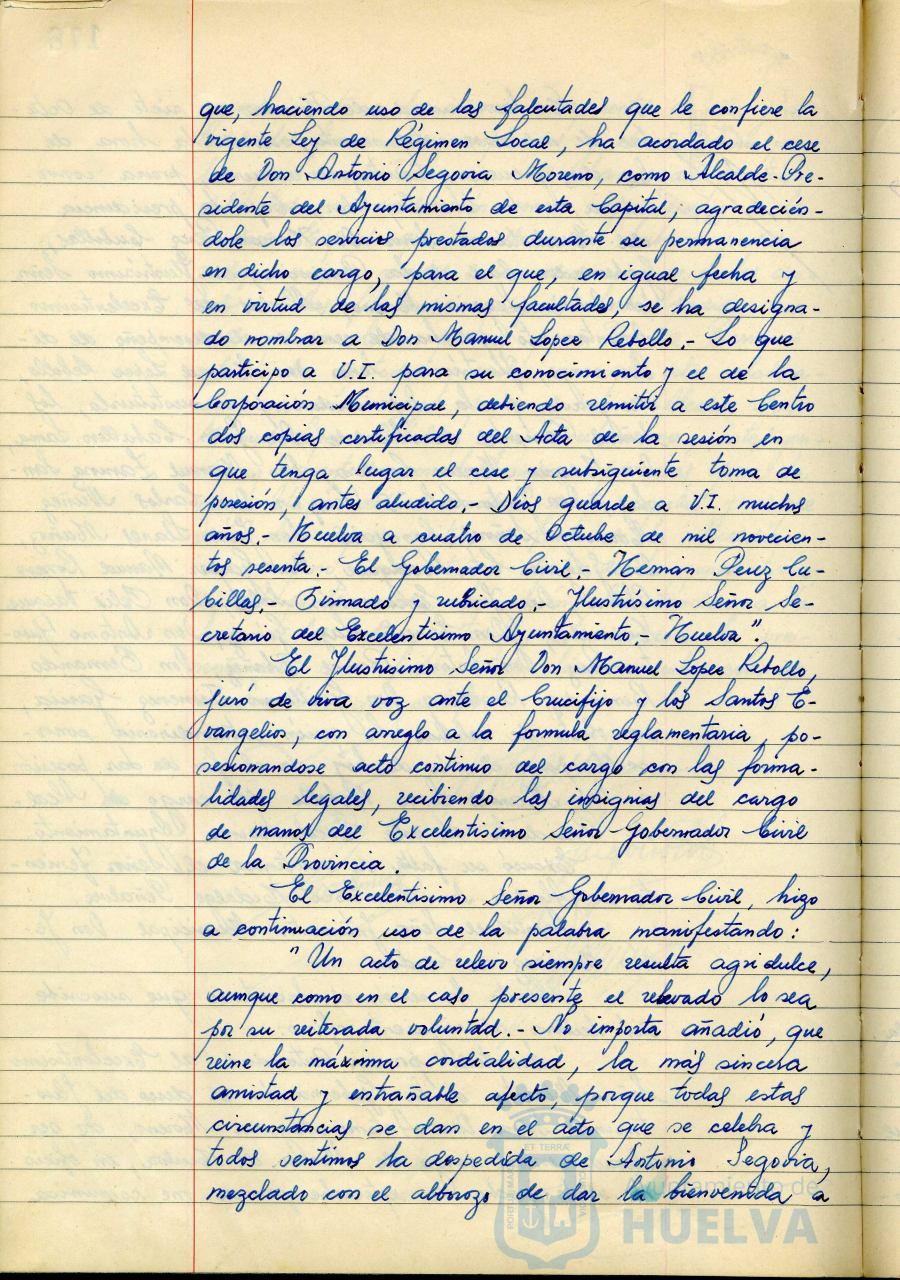 que, haciendo uso de las falcutades que le confiere la
vigente Ley de Régimen Local, ha acordado el cese
de Don Antonio Segovia Moreno, como Alcalde-Pre-
sidente del Ayuntamiento de esta Capital, agradecién-
dole los servicios prestados durante su permanencia
en dicho cargo, para el que, en igual fecha y
en virtud de las mismas facultades, se ha designa-
do nombrar a Don Manuel Lopez Rebollo.- Lo que
participo a V.I. para su conocimiento y el de la
Corporación Municipal, debiendo remitir a este Centro
dos copias certificadas del Acta de la sesión en
que tenga lugar el cese y subsiguiente toma de
posesión, antes aludido.- Dios guarde a V.I. muchos
años.- Huelva a cuatro de Octubre de mil novecien-
tos sesenta.- El Gobernador Civil.- Hernan Perez Cu-
billas.- Firmado y rubricado.- Ilustrísimo Señor Se-
cretario del Excelentisimo Ayuntamiento.- Huelva".
El Ilustrisimo Señor Don Manuel Lopez Rebollo,
juró de viva voz ante el Crucifijo y los Santos E-
vangelios, con arreglo a la formula reglamentaria, po-
sesionandose acto continuo del cargo con las forma-
lidades legales, recibiendo las insignias del cargo
de manos del Excelentisimo Señor Gobernador Civil
de la Provincia.
El Excelentisimo Señor Gobernador Civil, hizo
a continuación uso de la palabra manifestando:
"Un acto de relevo siempre resulta agridulce,
aunque como en el caso presente el relevado lo sea
por su reiterada voluntad.- No importa añadió, que
reine la máxima cordialidad, la más sincera
amistad y entrañable afecto, porque todas estas
circunstancias se dan en el acto que se celebra y
todos sentimos la despedida de Antonio Segovia,
mezclado con el alborozo de dar la bienvenida a
Ayuntamiento de
HUELVA